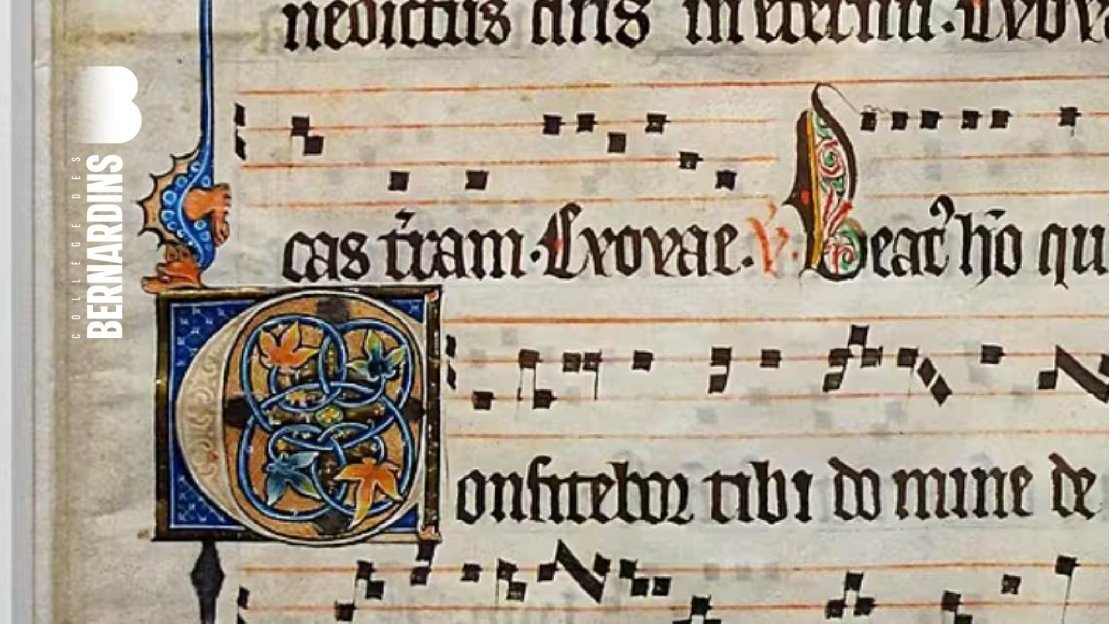 nedictus eris in eternū. Evova
cas tr̄am. Evovae. ℣. Beat᷒ hō qu
Confitebor tibi do mine de
COLLEGE DES
BERNARDINS